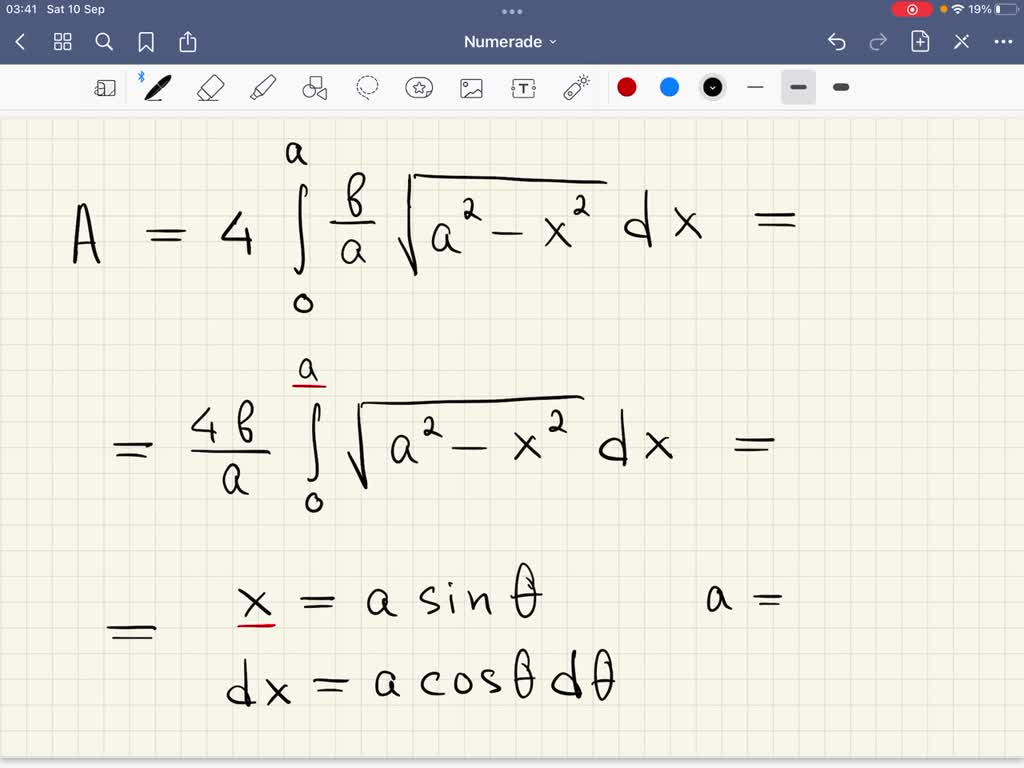 03:41 Sat 10 Sep 19%
Numerade
T
a
A = 4 ∫ b/a √(a² - x²) dx =
0
a
= 4b/a ∫ √(a² - x²) dx =
0
= x = a sin θ a =
dx = a cos θ dθ